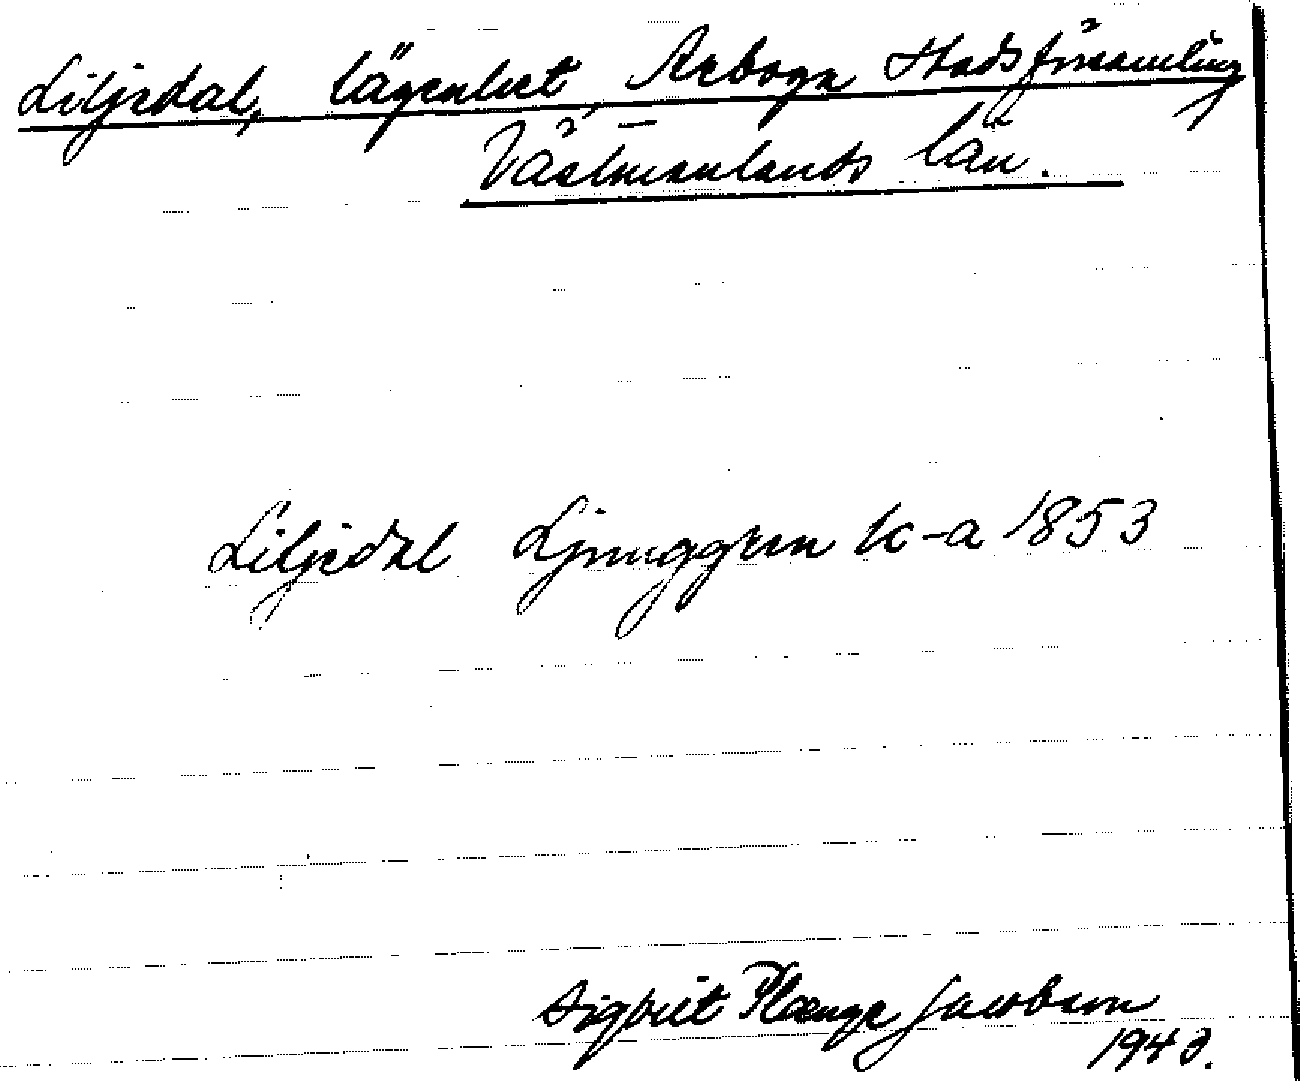 Liljedal, lägenhet, Arboga Stadsförsamling
Västmanlands län.
Liljedal Ljunggren k-a 1853
Sigbrit Plænge Jacobson
1943.